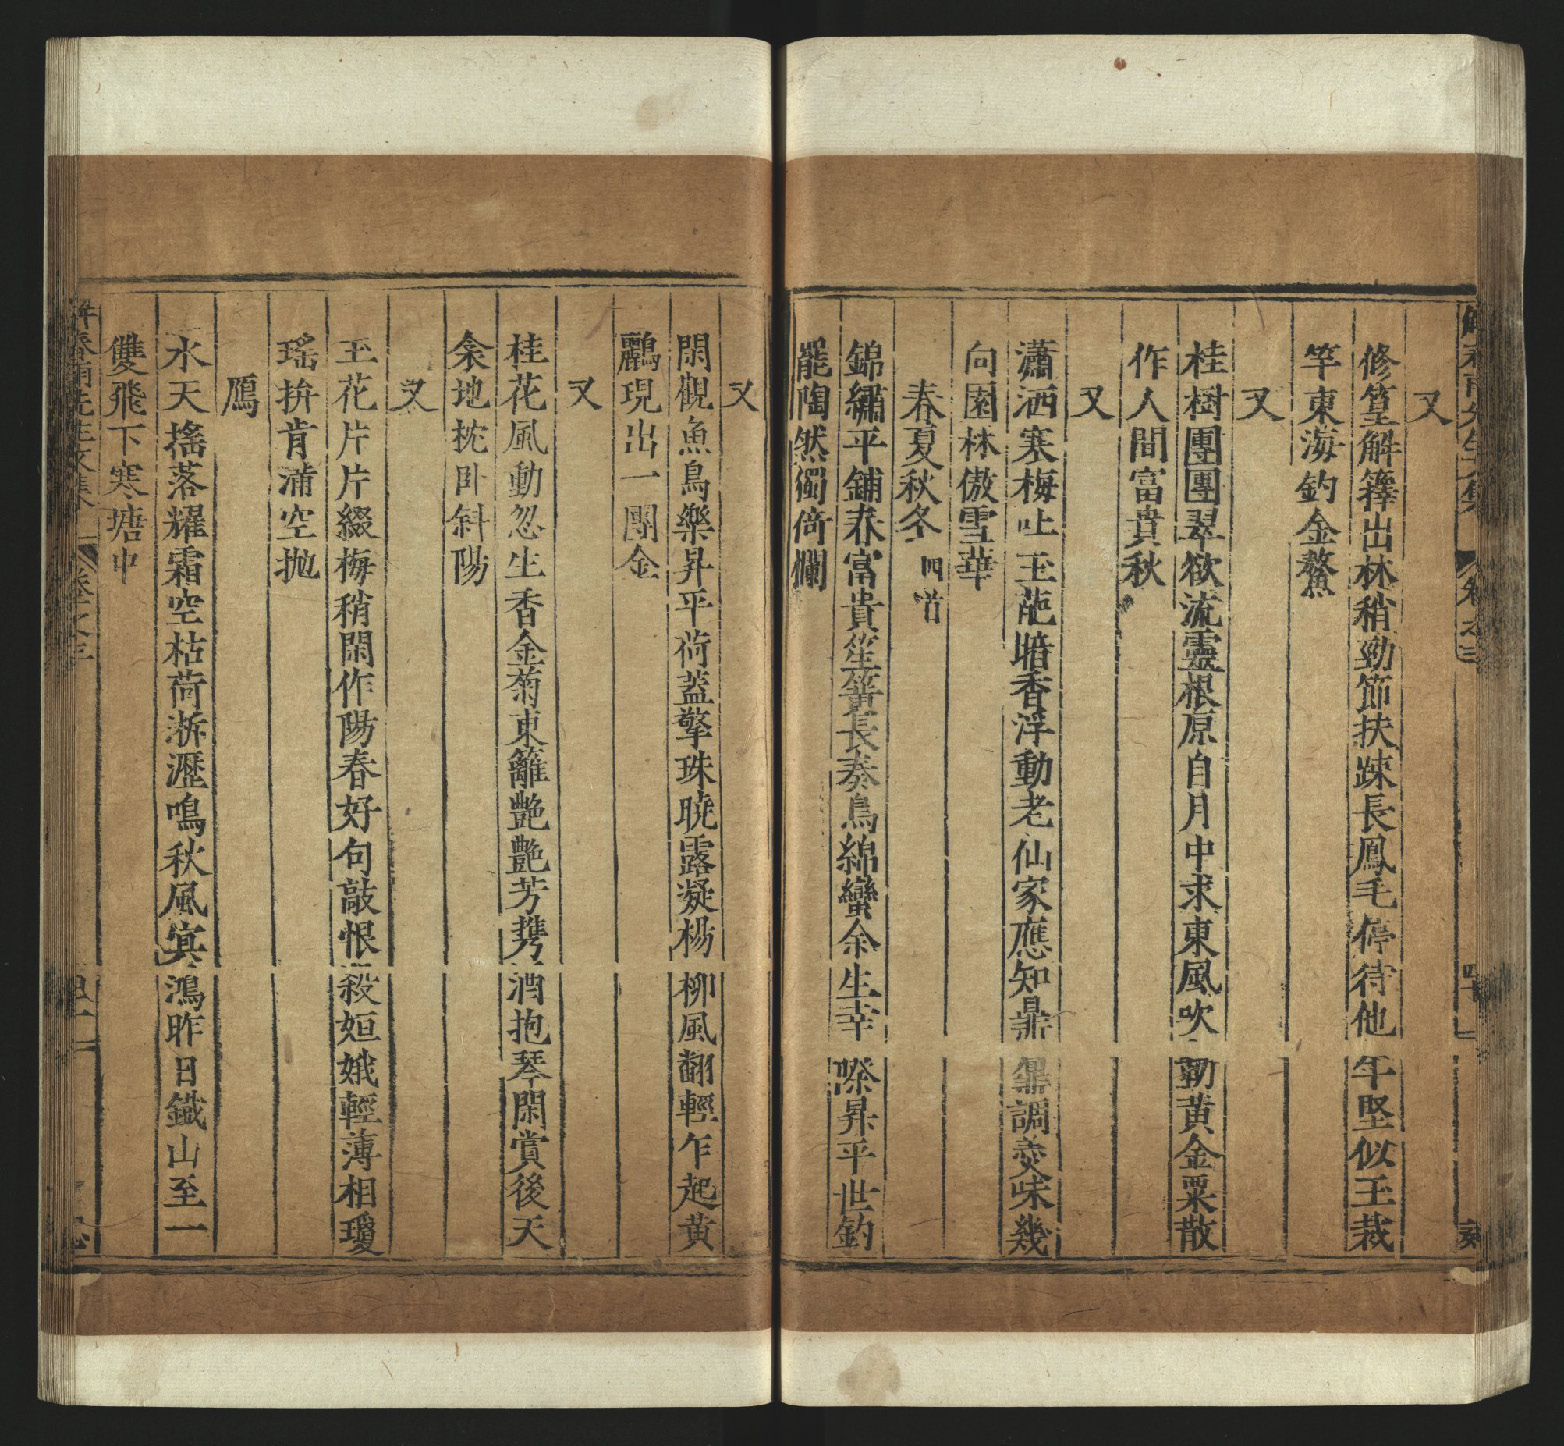 又
修篁解籜出林稍勁節扶踈長鳳毛停待他年堅似玉裁
竿東海釣金鰲
又
桂樹團團翠欲流靈根原自月中求東風吹動黄金粟散
作人間富貴秋
又
瀟洒寒梅吐玉葩暗香浮動老仙家應知鼎鼐調羮味幾
向園林傲雪華
春夏秋冬 四首
錦繡平鋪春富貴笙簧長奏鳥綿蠻余生幸際昇平世釣
罷陶然獨倚欄
又
閑觀魚鳥樂昇平荷蓋擎珠曉露凝楊柳風翻輕乍起黄
鸝現出一團金
又
桂花風動忽生香金菊東籬艷艷芳携酒抱琴閑賞後天
衾地枕卧斜陽
又
玉花片片綴梅稍閑作陽春好句敲恨殺姮娥輕薄相瓊
瑤拚肯滿空抛
鴈
水天搖落耀霜空枯荷淅瀝鳴秋風寘鴻昨日鐵山至一
雙飛下寒塘中
卷之三